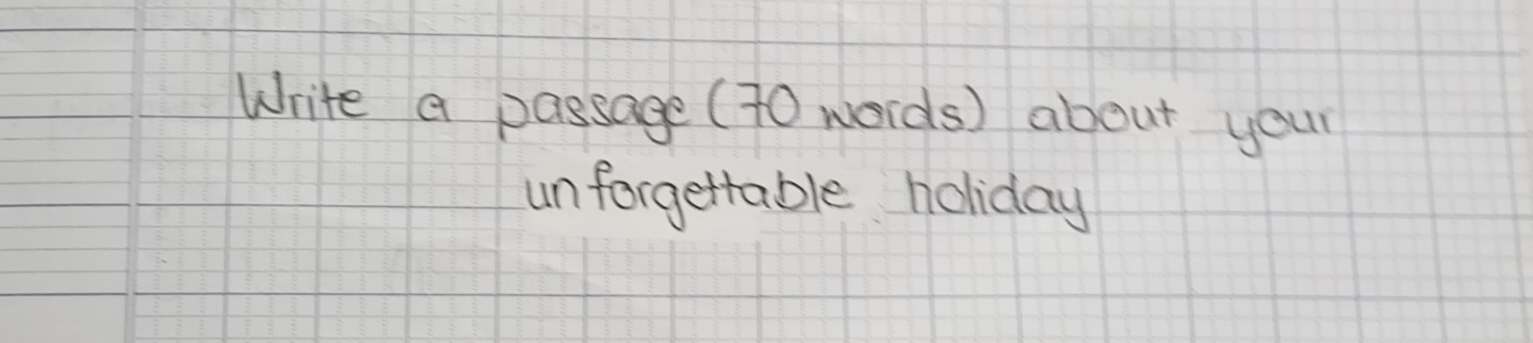 Write a passage (70 words) about your
unforgettable holiday